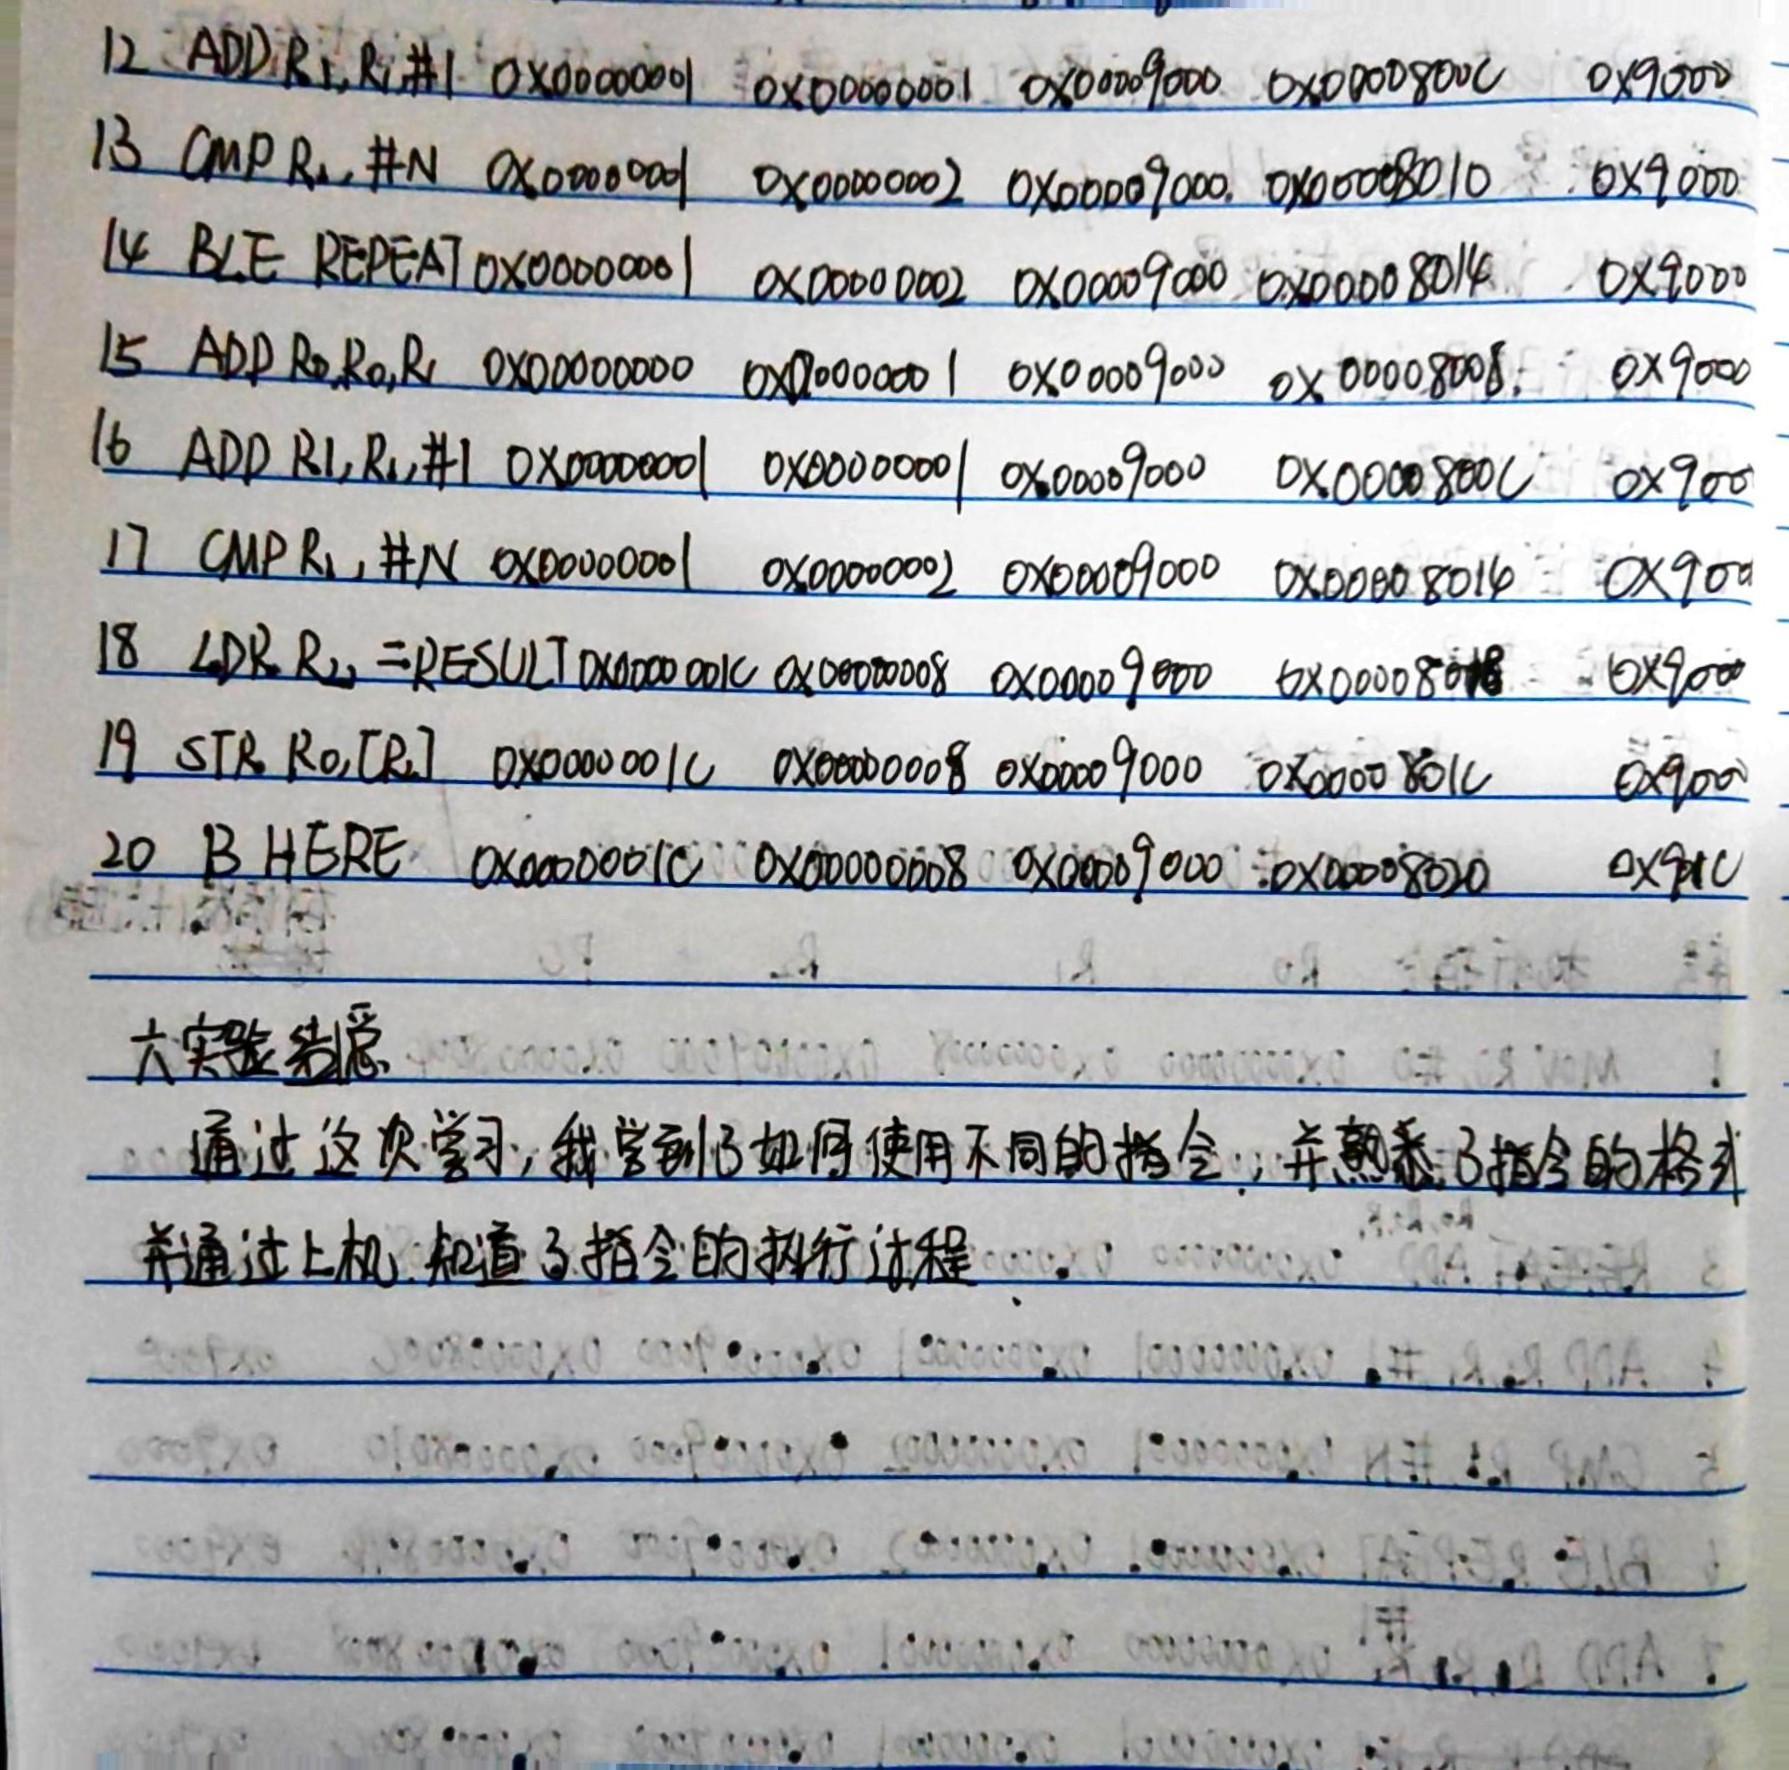 12 ADD R1,R1,#1 0X00000001 0X00000001 0X00009000 0X0000800C 0X9000
13 CMP R1,#N 0X00000001 0X00000002 0X00009000 0X00008010 0X9000
14 BLE REPEAT 0X00000001 0X00000002 0X00009000 0X00008014 0X9000
15 ADD R0,R0,R1 0X00000000 0X00000001 0X00009000 0X00008008 0X9000
16 ADD R1,R1,#1 0X00000001 0X00000001 0X00009000 0X0000800C 0X900
17 CMP R1,#N 0X00000001 0X00000002 0X00009000 0X00008014 0X900
18 LDR R2,=RESULT 0X0000001C 0X00000008 0X00009000 0X00008018 0X9000
19 STR R0,[R2] 0X0000001C 0X00000008 0X00009000 0X0000801C 0X900
20 B HERE 0X0000001C 0X00000008 0X00009000 0X00008020 0X901C
六实验总
通过这次学习,我学到了如何使用不同的指令,并熟悉了指令的格式
并通过上机,知道了指令的执行过程